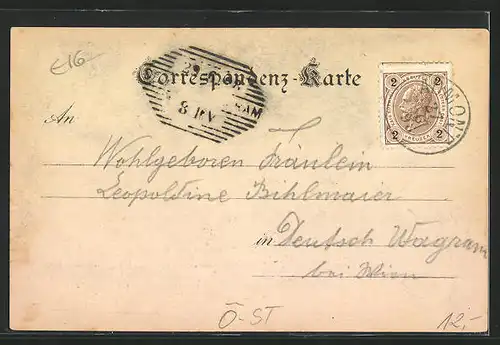 €16
Correspondenz-Karte
2 2
2 2
KREUZER
An
8 IV
Wohlgeboren Fräulein
Leopoldine Bihlmaier
in Deutsch Wagram
bei Wien
Ö-ST
12,-